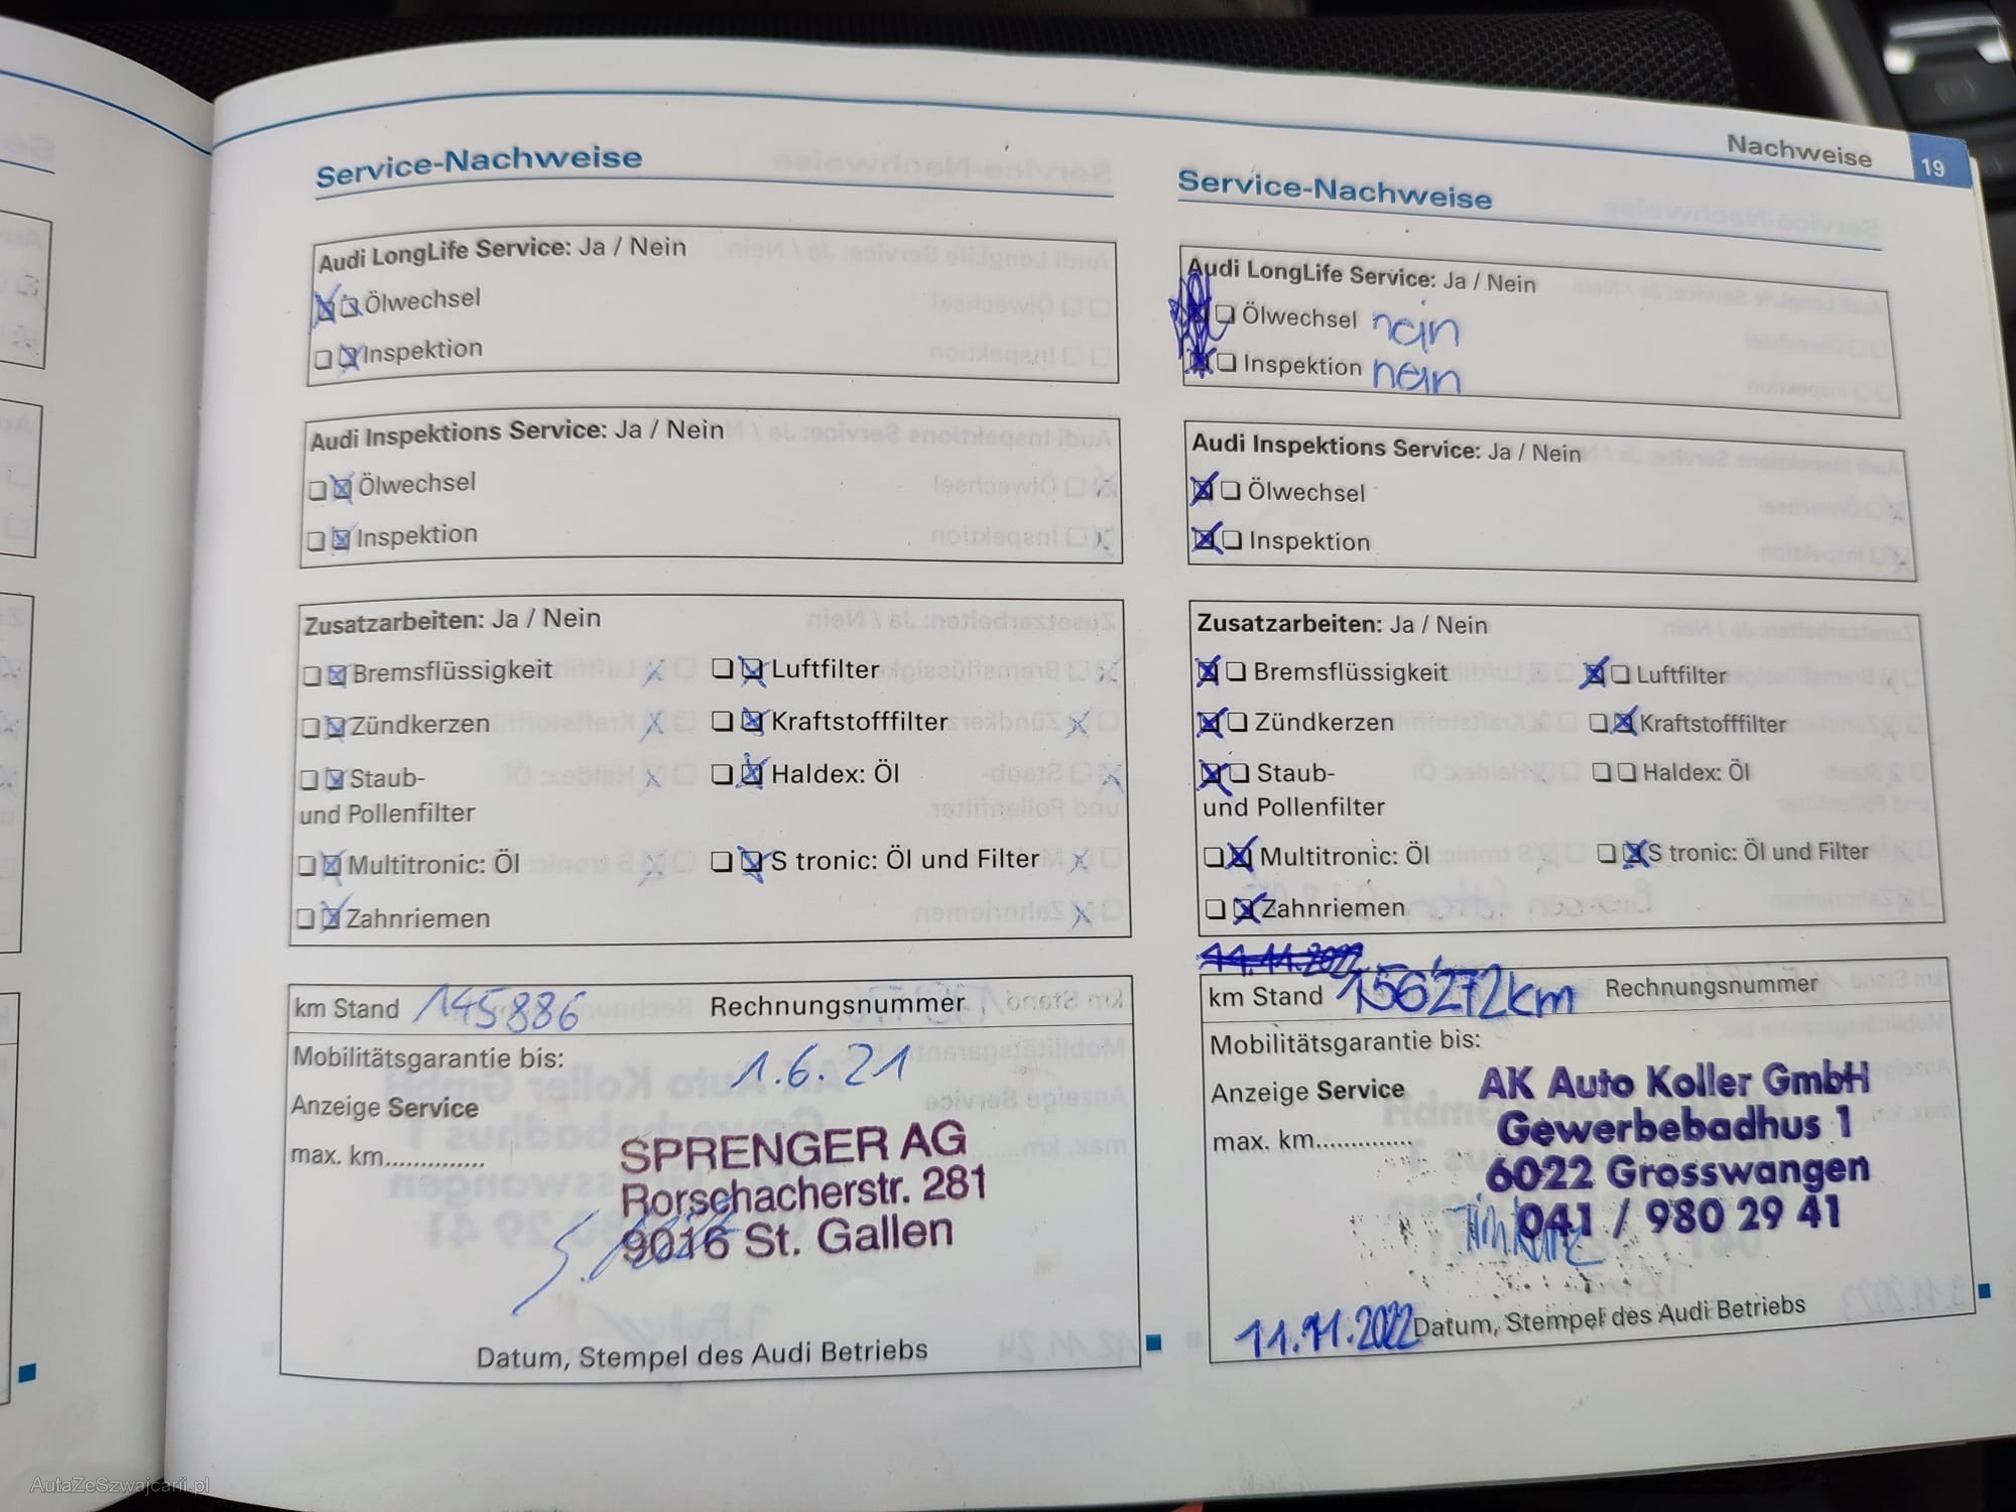 Nachweise 19
Service-Nachweise
Audi LongLife Service: Ja / Nein
Ölwechsel
Inspektion
Audi Inspektions Service: Ja / Nein
Ölwechsel
Inspektion
Zusatzarbeiten: Ja / Nein
Bremsflüssigkeit Luftfilter
Zündkerzen Kraftstofffilter
Staub- Haldex: Öl
und Pollenfilter
Multitronic: Öl S tronic: Öl und Filter
Zahnriemen
km Stand 145886 Rechnungsnummer
Mobilitätsgarantie bis: 1.6.21
Anzeige Service
max. km..............
SPRENGER AG
Rorschacherstr. 281
9016 St. Gallen
Datum, Stempel des Audi Betriebs
Service-Nachweise
Audi LongLife Service: Ja / Nein
Ölwechsel nein
Inspektion nein
Audi Inspektions Service: Ja / Nein
Ölwechsel
Inspektion
Zusatzarbeiten: Ja / Nein
Bremsflüssigkeit Luftfilter
Zündkerzen Kraftstofffilter
Staub- Haldex: Öl
und Pollenfilter
Multitronic: Öl S tronic: Öl und Filter
Zahnriemen
11.11.2022
km Stand 156272km Rechnungsnummer
Mobilitätsgarantie bis:
Anzeige Service
max. km.............
AK Auto Koller GmbH
Gewerbebadhus 1
6022 Grosswangen
041 / 980 29 41
11.11.2022 Datum, Stempel des Audi Betriebs
AutaZeSzwajcarii.pl